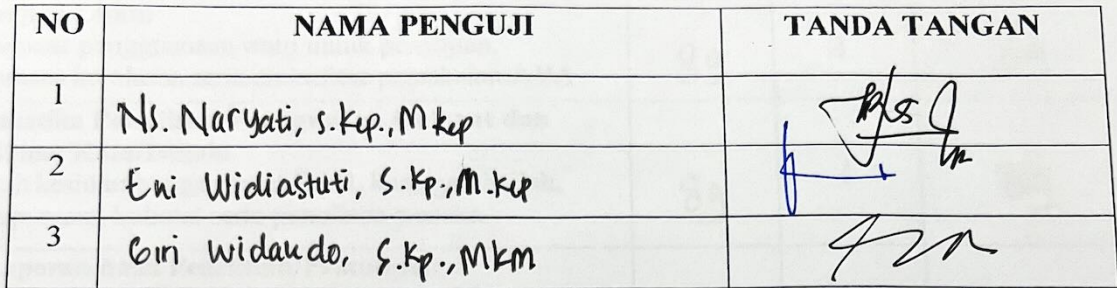 NO NAMA PENGUJI TANDA TANGAN
1 Ns. Naryati, S.Kep., M.Kep
2 Eni Widiastuti, S.Kp., M.Kep
3 Giri Widaudo, S.Kp., MKM